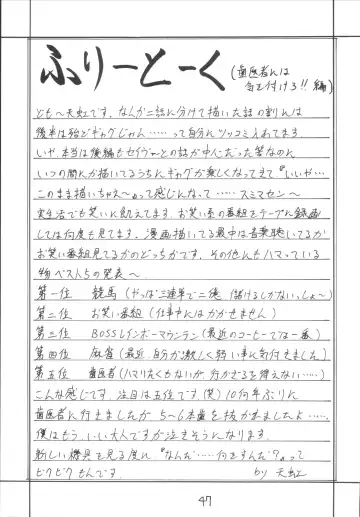 ふりーとーく(歯医者には気を付けろ!!編)
ども〜天虹です。なんか二話に分けて描いた話の割には
後半は殆どギャグじゃん……って自分にツッコミ入れてます
いや、本当は後編もセイヴァーとの話が中心だった筈なのに
いつの間にか描いてるうちにギャグが楽しくなってきて『いいや…
このまま描いちゃえ〜』って感じになって……スミマセン〜
実生活でも笑いに飢えてます。お笑い系の番組をテープに録画
しては何度も見てます。漫画描いてる最中は音楽聴いてるか
お笑い番組見てるかのどっちかです。その他にもハマっている
物ベスト5の発表〜
第一位 競馬(やっぱ三連単で二億 儲けるしかないっしょ〜)
第二位 お笑い番組(仕事中にはかかせません)
第三位 BOSSレインボーマウンテン(最近のコーヒーでは一番)
第四位 麻雀(最近、自分が激しく弱い事に気付きました)
第五位 歯医者(ハマりたくもないが行かざるを得ない……)
こんな感じです。注目は五位です(笑)10何年ぶりに
歯医者に行きましたが5〜6本歯を抜かれましたよ……
僕はもう、いい大人ですが泣きそうになります。
新しい機具を見る度に『なんだ……何をすんだ?』って
ビクビクもんです。 by 天虹
47